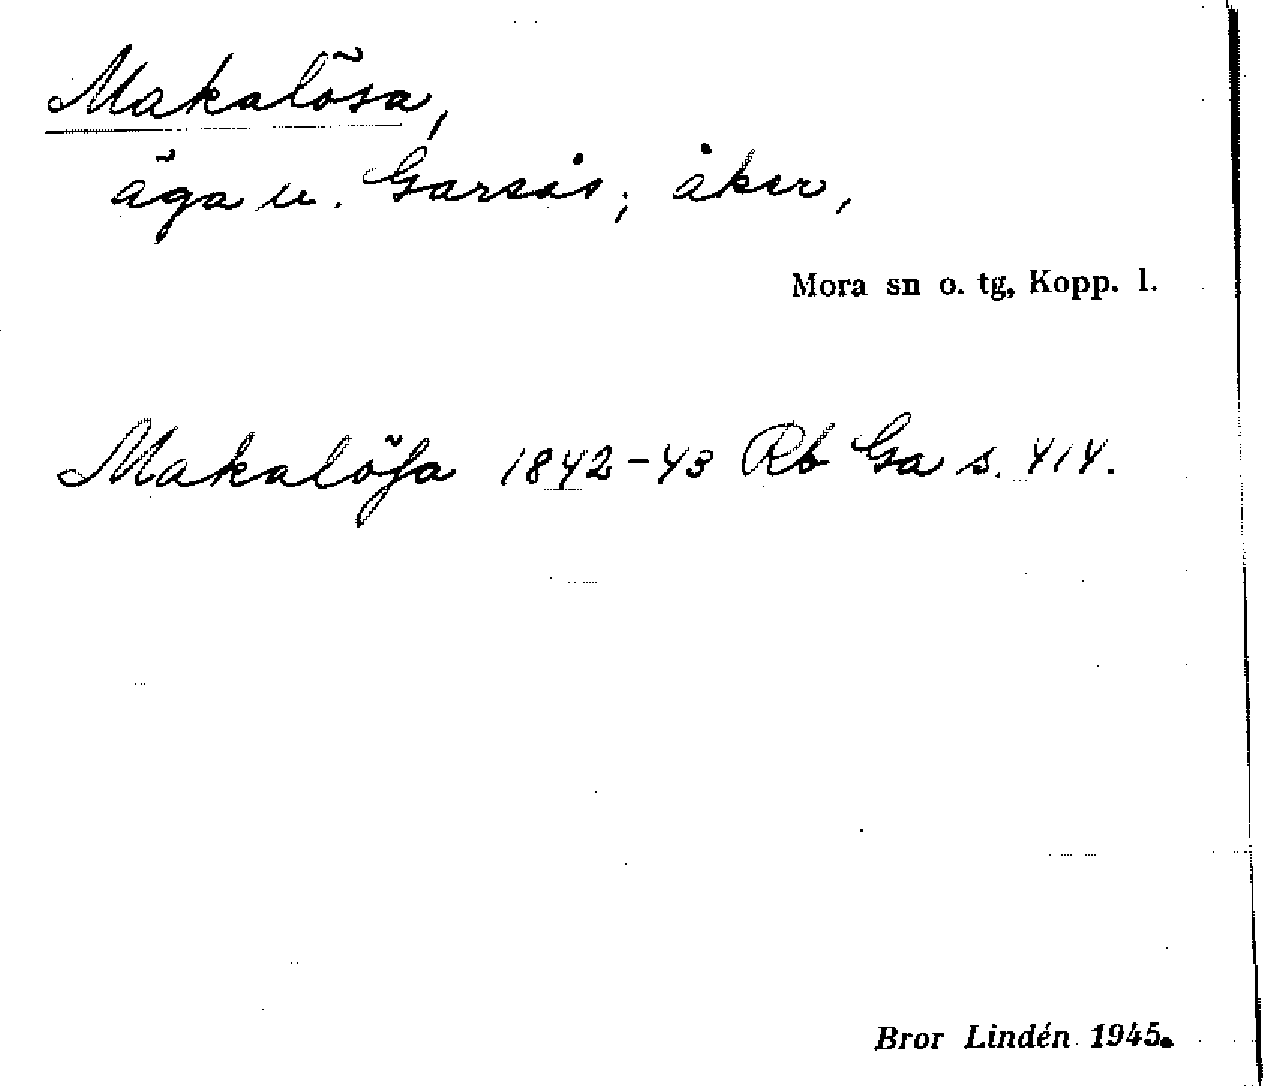 Makalösa,
äga u. Garsås; åker,
Mora sn o. tg, Kopp. l.
Makalöſa 1842-43 Rb Ga s. 414.
Bror Lindén 1945.